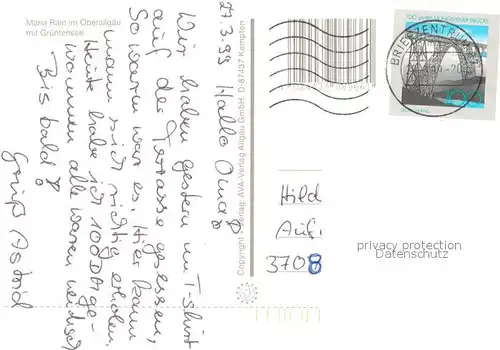 Maria Rain im Oberallgäu
mit Grüntensee
27.3.99 Hallo Oma!
Wir haben gestern im T-shirt
auf der Terrasse gesessen,
so warm war es. Hier kann
man sich richtig erholen.
Heute habe ich 100 DM ge-
wonnen alle waren neidisch
Bis bald!
Gruß Astrid
Copyright + Verlag: AVA-Verlag Allgäu GmbH, D-87437 Kempten
100 JAHRE MÜNGSTENER BRÜCKE
BRIEFZENTRUM
100
Hild
Auf.
3708
privacy protection
Datenschutz